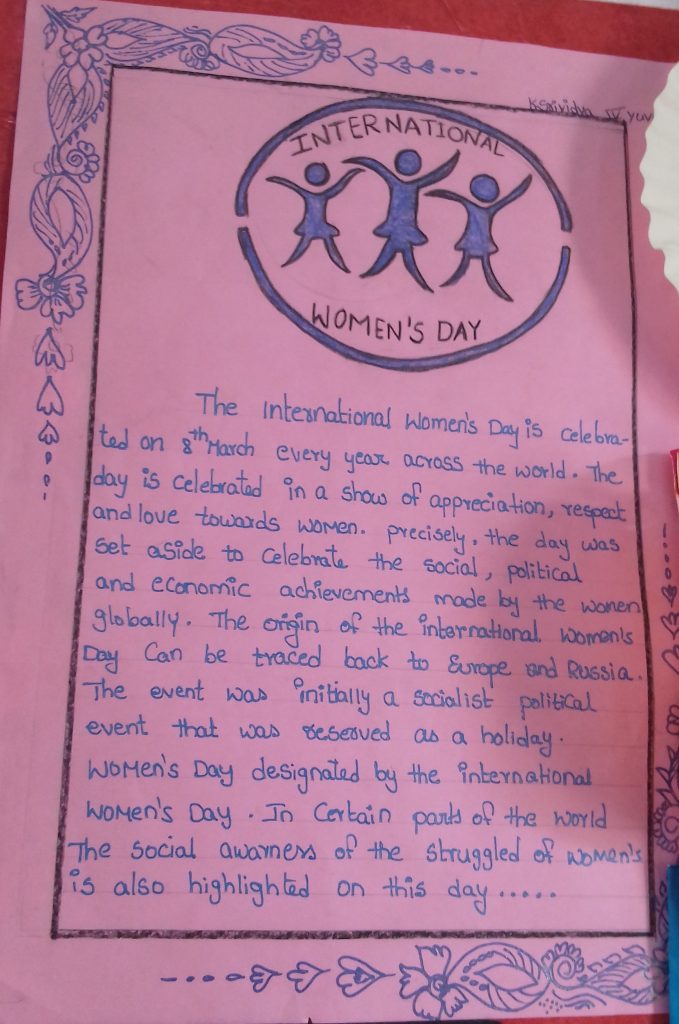 INTERNATIONAL
WOMEN'S DAY
The International Women's Day is celebra-
ted on 8th March every year across the world. The
day is celebrated in a show of appreciation, respect
and love towards women. precisely. the day was
set aside to celebrate the social, political
and economic achievements made by the women
globally. The origin of the international women's
Day Can be traced back to Europe and Russia.
The event was initially a socialist political
event that was reserved as a holiday.
Women's Day designated by the international
Women's Day. In Certain parts of the world
The social awarness of the struggled of women's
is also highlighted on this day .....